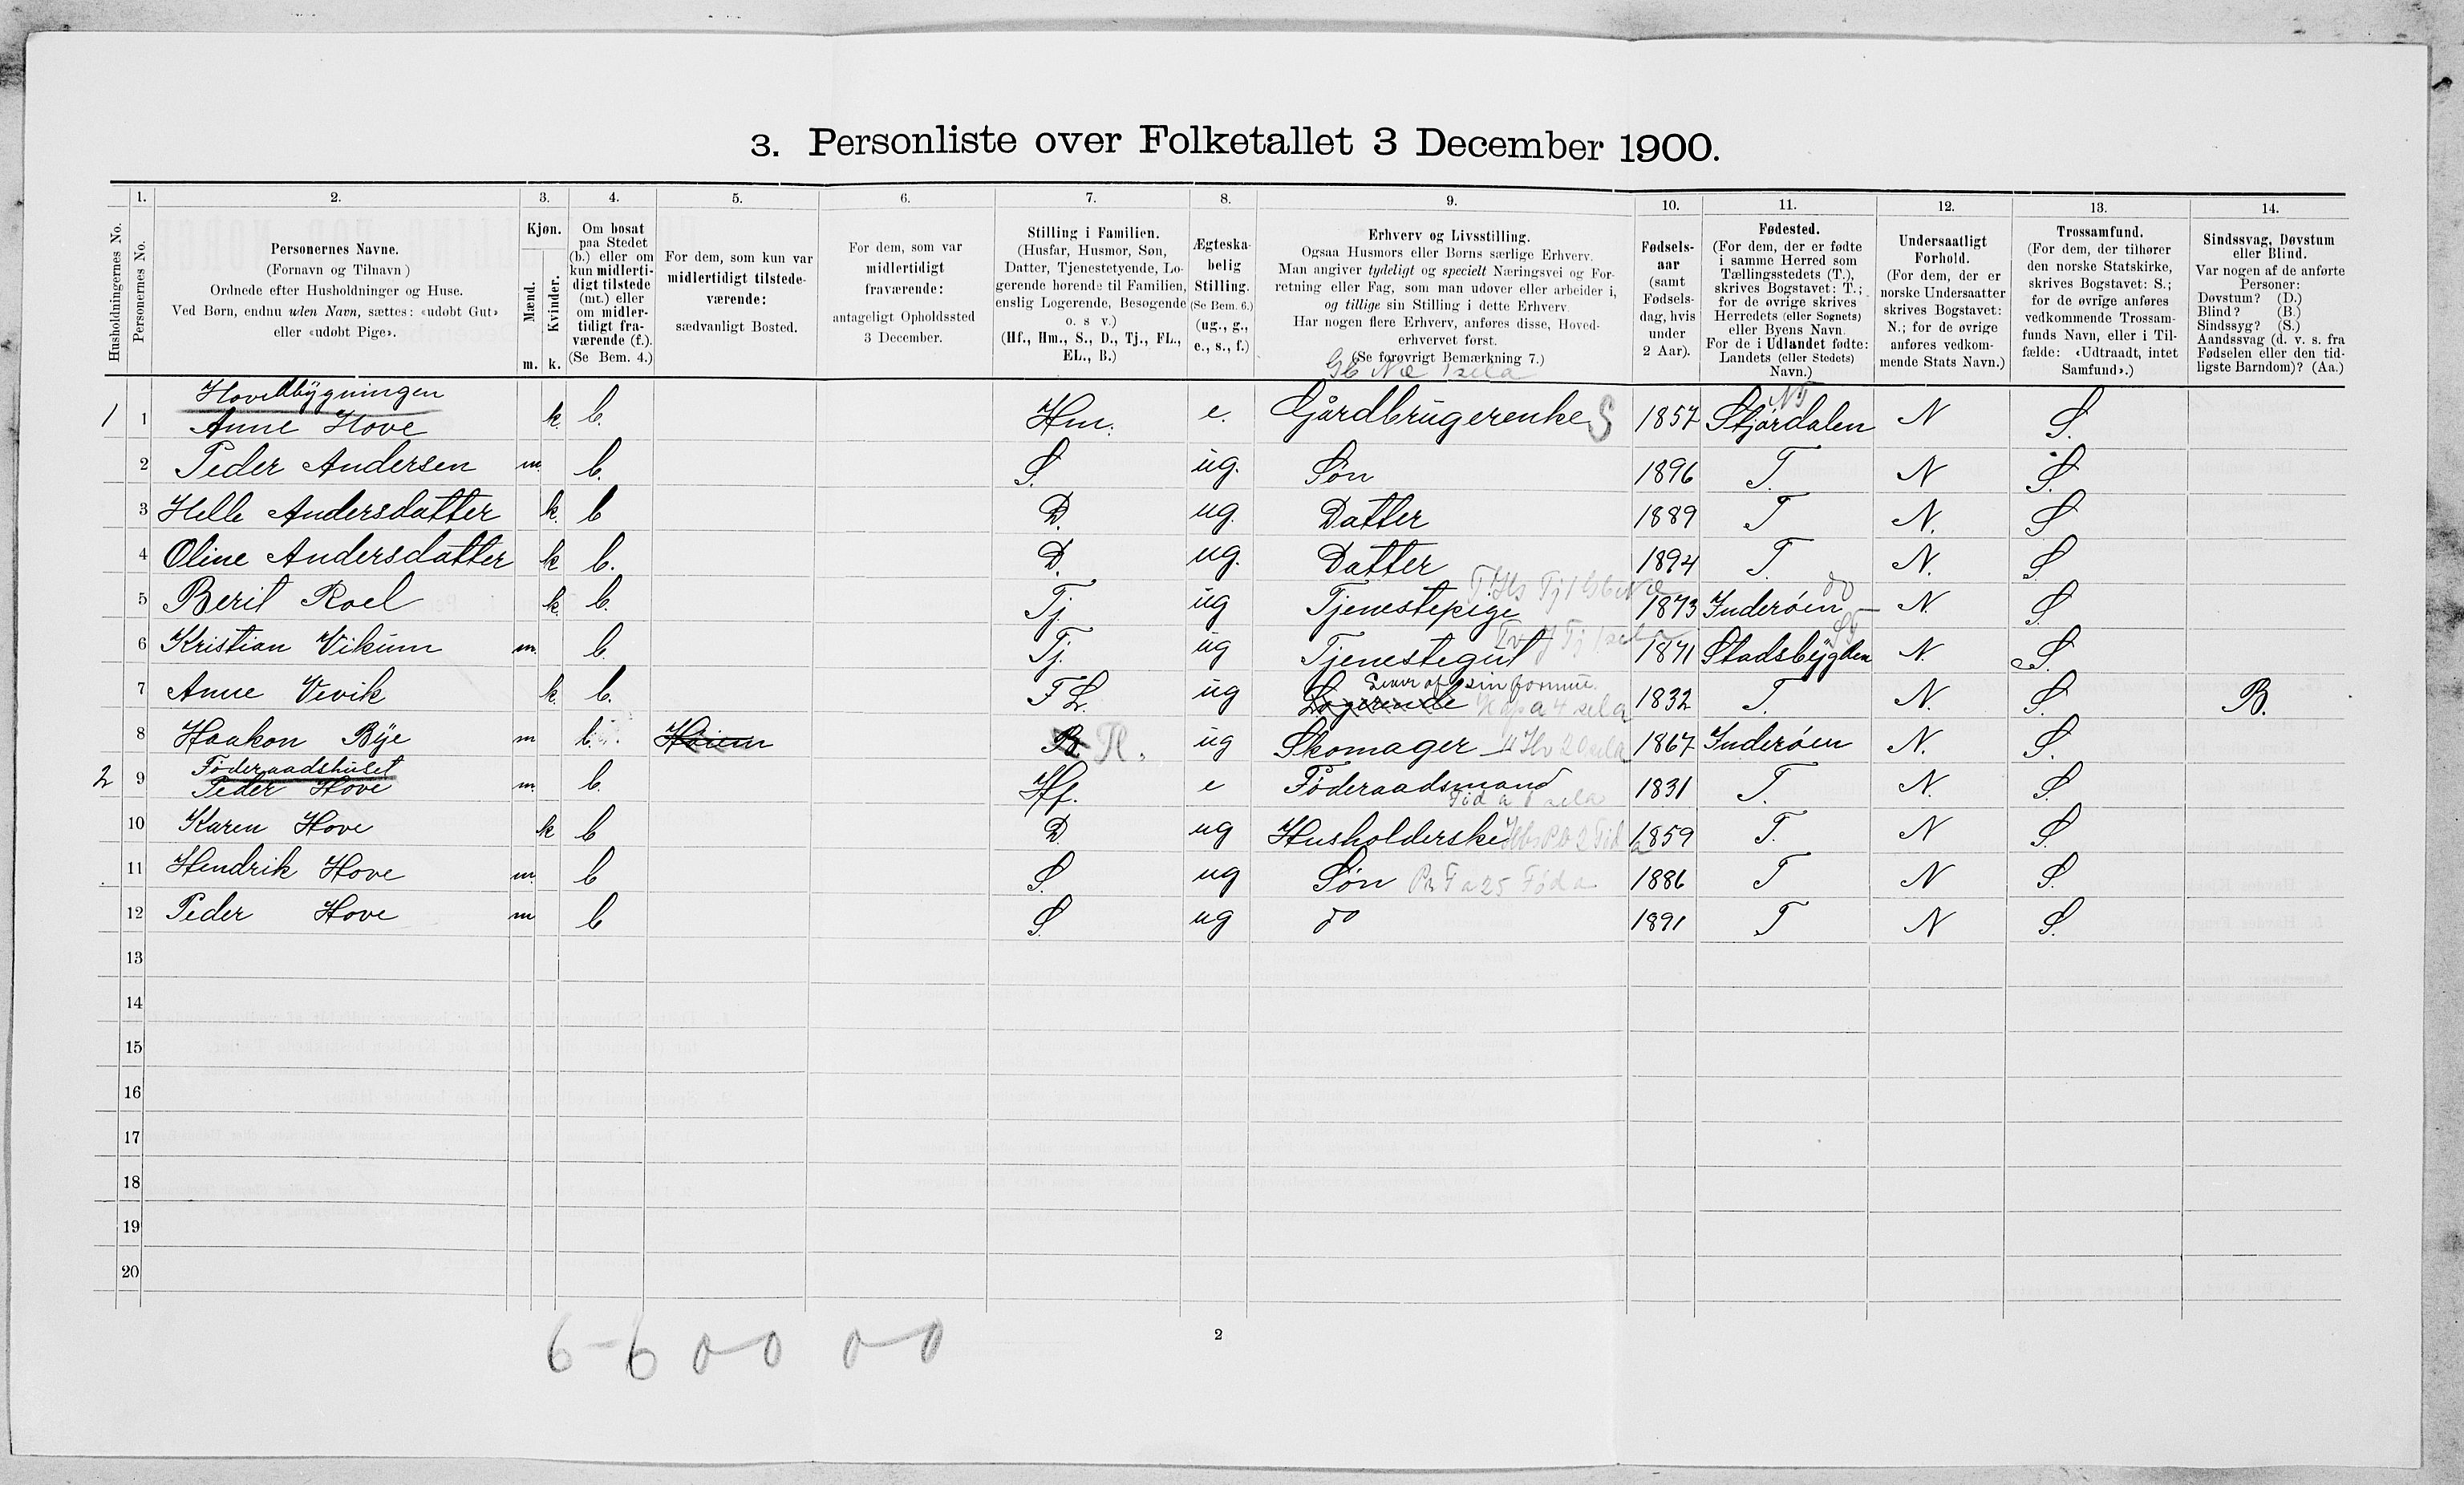 3. Personliste over Folketallet 3 December 1900.
1. 2. 3. 4. 5. 6. 7. 8. 9. 10. 11. 12. 13. 14.
Husholdningernes No.
Personernes No.
Personernes Navne.
(Fornavn og Tilnavn)
Ordnede efter Husholdninger og Huse.
Ved Børn, endnu uden Navn, sættes: «udøbt Gut»
eller «udøbt Pige».
Kjøn.
Mænd.
Kvinder.
m. k.
Om bosat
paa Stedet
(b.) eller om
kun midlerti-
digt tilstede
(mt.) eller
om midler-
tidigt fra-
værende (f.).
(Se Bem. 4.)
For dem, som kun var
midlertidigt tilstede-
værende:
sædvanligt Bosted.
For dem, som var
midlertidigt
fraværende:
antageligt Opholdssted
3 December.
Stilling i Familien.
(Husfar, Husmor, Søn,
Datter, Tjenestetyende, Lo-
gerende hørende til Familien,
enslig Logerende, Besøgende
o. s v.)
(Hf., Hm., S., D., Tj., FL.,
EL., B.)
Ægteska-
belig
Stilling.
(Se Bem. 6.)
(ug., g.,
e., s., f.)
Erhverv og Livsstilling.
Ogsaa Husmors eller Børns særlige Erhverv.
Man angiver tydeligt og specielt Næringsvei og For-
retning eller Fag, som man udøver eller arbeider i,
og tillige sin Stilling i dette Erhverv.
Har nogen flere Erhverv, anføres disse, Hoved-
erhvervet først.
(Se forøvrigt Bemærkning 7.)
Fødsels-
aar
(samt
Fødsels-
dag, hvis
under
2 Aar).
Fødested.
(For dem, der er fødte
i samme Herred som
Tællingsstedets (T.),
skrives Bogstavet: T.;
for de øvrige skrives
Herredets (eller Sognets)
eller Byens Navn.
For de i Udlandet fødte:
Landets (eller Stedets)
Navn.)
Undersaatligt
Forhold.
(For dem, der er
norske Undersaatter
skrives Bogstavet:
N.; for de øvrige
anføres vedkom-
mende Stats Navn.)
Trossamfund.
(For dem, der tilhører
den norske Statskirke,
skrives Bogstavet: S.;
for de øvrige anføres
vedkommende Trossam-
funds Navn, eller i Til-
fælde: «Udtraadt, intet
Samfund».)
Sindssvag, Døvstum
eller Blind.
Var nogen af de anførte
Personer:
Døvstum? (D.)
Blind? (B.)
Sindssyg? (S.)
Aandssvag (d. v. s. fra
Fødselen eller den tid-
ligste Barndom)? (Aa.)
Hovedbygningen
1 1 Anne Hove k. b. Hm. e. Gårdbrugerenke S 1857 Stjørdalen N S.
2 Peder Andersen m. b. S. ug. Søn 1896 T. N S.
3 Helle Andersdatter k. b D. ug. Datter 1889 T N. S
4 Oline Andersdatter k b. D. ug. Datter 1894 T. N. S
5 Berit Roel k. b. Tj. ug Tjenestepige 1873 Inderøen do N. S.
6 Kristian Vikum m. b. Tj. ug Tjenestegut 1871 Stadsbygden N. S.
Lever af sin formue.
7 Anne Vevik k. b. F L. ug Logerende 1832 T. N. S. B.
8 Haakon Bye m b. Høiem B. ug Skomager 1867 Inderøen N. S.
Føderaadshuset
2 9 Peder Hove m. b. Hf. e Føderaadsmand 1831 T. N. S.
10 Karen Hove k b D. ug Husholderske 1859 T. N S.
11 Hendrik Hove m. b S. ug Søn 1886 T N S.
12 Peder Hove m b S. ug do 1891 T N S.
13
14
15
16
17
18
19
20
6-6 0-0 0-0
2